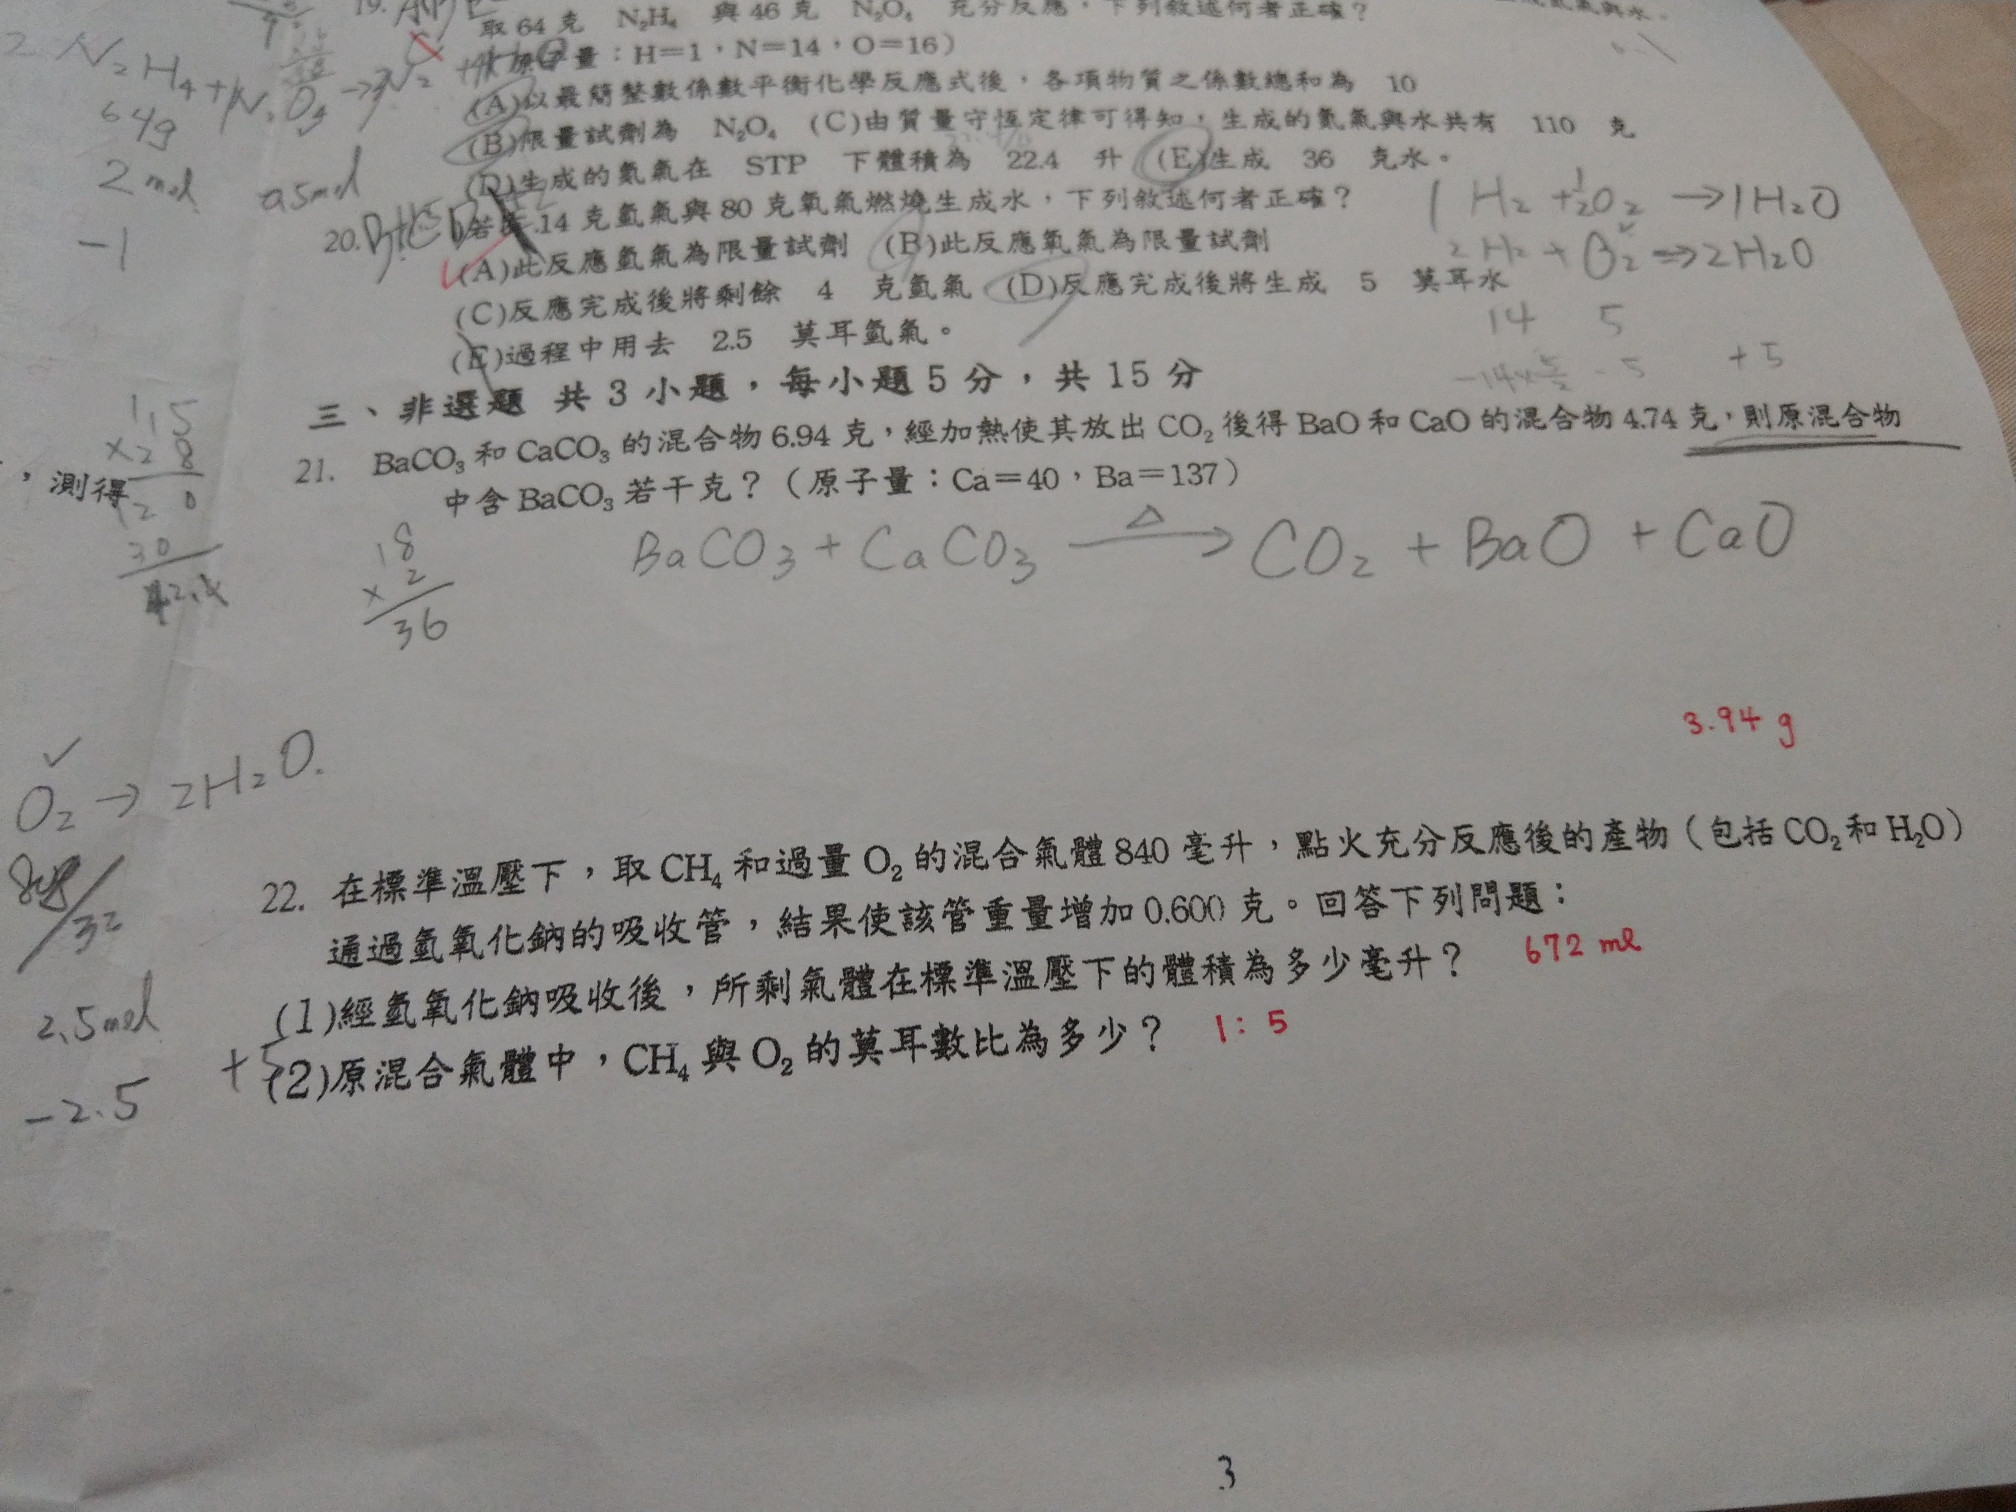 取 64 克 N₂H₄ 與 46 克 N₂O₄ 充分反應，下列敘述何者正確？
量：H＝1，N＝14，O＝16）
(A)以最簡整數係數平衡化學反應式後，各項物質之係數總和為 10
(B)限量試劑為 N₂O₄ (C)由質量守恆定律可得知，生成的氮氣與水共有 110 克
(D)生成的氮氣在 STP 下體積為 22.4 升 (E)生成 36 克水。
20. 若 14 克氫氣與 80 克氧氣燃燒生成水，下列敘述何者正確？
(A)此反應氫氣為限量試劑 (B)此反應氧氣為限量試劑
(C)反應完成後將剩餘 4 克氫氣 (D)反應完成後將生成 5 莫耳水
(E)過程中用去 2.5 莫耳氫氣。
1 H₂ + ½O₂ → 1H₂O
2H₂ + O₂ → 2H₂O
14 5
+5
三、非選題 共 3 小題，每小題 5 分，共 15 分
21. BaCO₃ 和 CaCO₃ 的混合物 6.94 克，經加熱使其放出 CO₂ 後得 BaO 和 CaO 的混合物 4.74 克，則原混合物
中含 BaCO₃ 若干克？（原子量：Ca＝40，Ba＝137）
BaCO₃ + CaCO₃ →△ CO₂ + BaO + CaO
18
×2
36
3.94 g
22. 在標準溫壓下，取 CH₄ 和過量 O₂ 的混合氣體 840 毫升，點火充分反應後的產物（包括 CO₂ 和 H₂O）
通過氫氧化鈉的吸收管，結果使該管重量增加 0.600 克。回答下列問題：
(1)經氫氧化鈉吸收後，所剩氣體在標準溫壓下的體積為多少毫升？ 672 ml
(2)原混合氣體中，CH₄ 與 O₂ 的莫耳數比為多少？ 1：5
64g
2 mol 0.5mol
-1
，測得
O₂ → 2H₂O.
32
2.5mol
-2.5
3